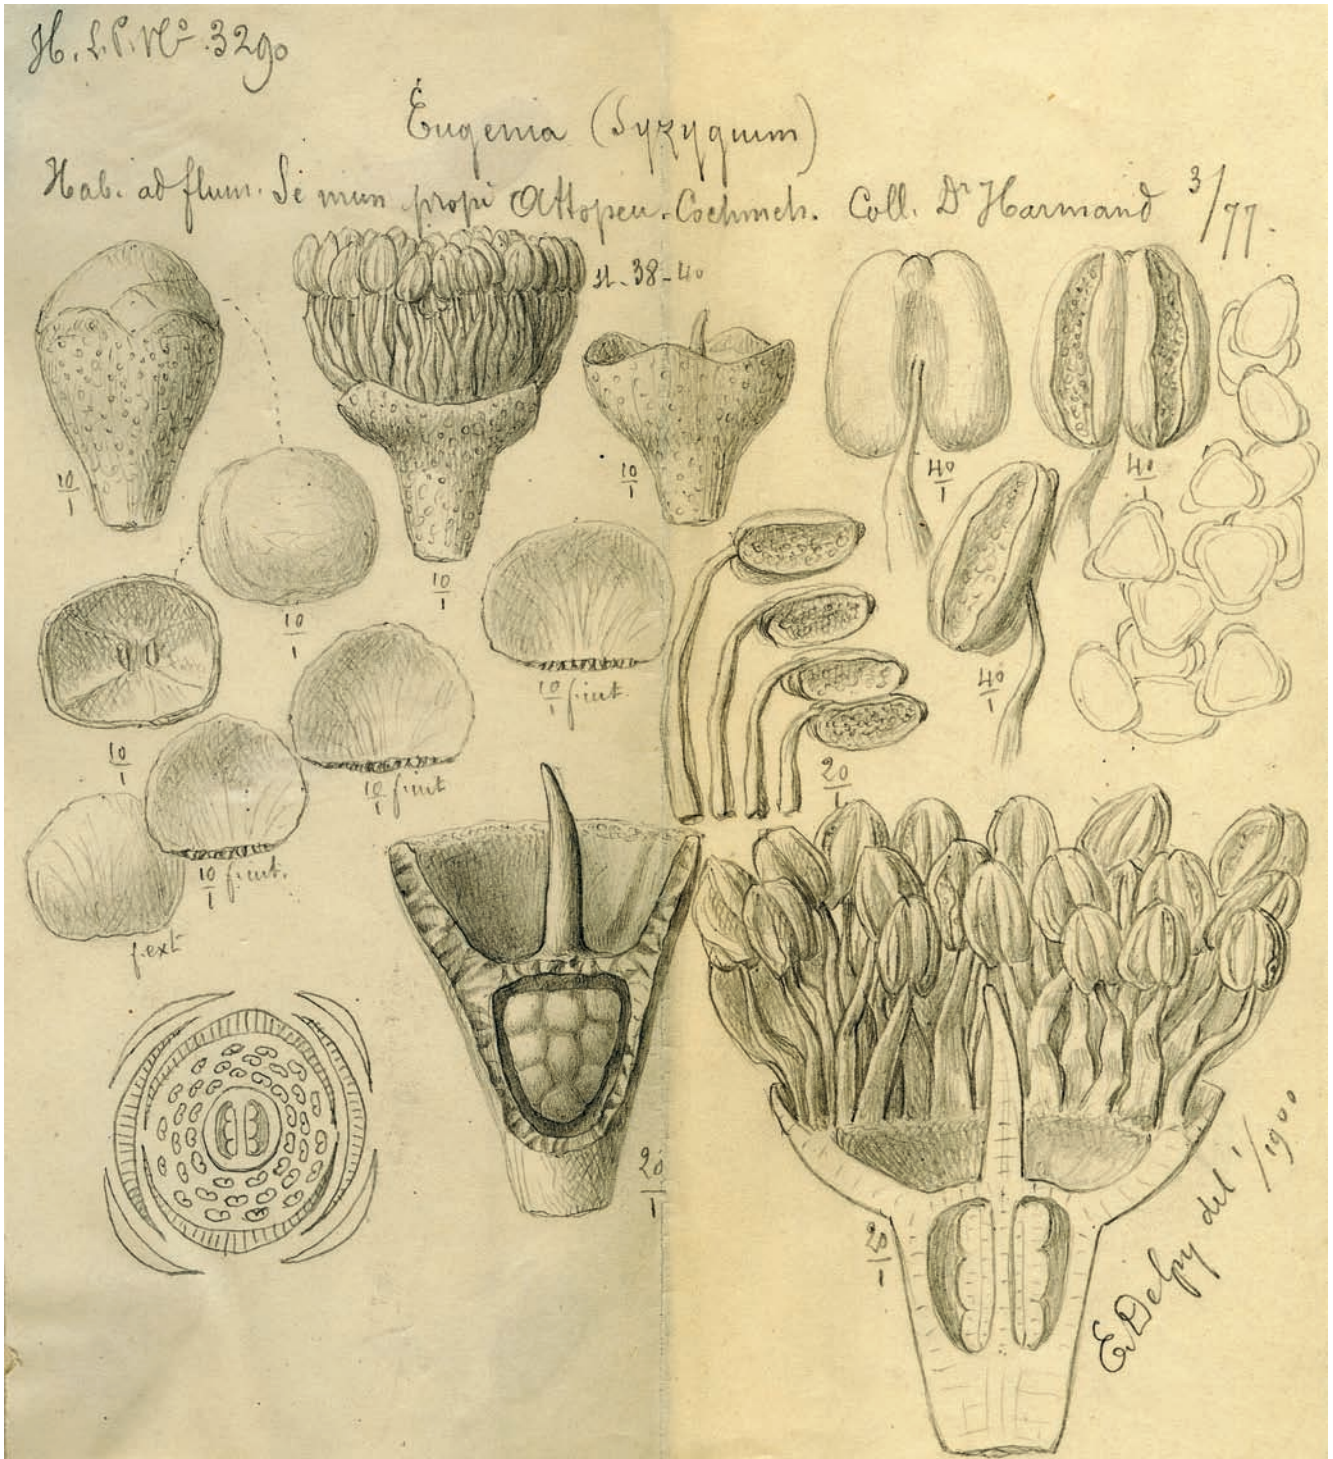 H. L. P. Nº 3290
Eugenia (Syzygium)
Hab. ad flum. Se mun propi Attopeu. Cochinch. Coll. Dr Harmand 3/77.
H. 38-40
10/1
10/1
10/1
40/1
40/1
10/1
10/1
10/1 f. int.
40/1
10/1
10/1 f. int
20/1
10/1 f. int.
f. ext
20/1
20/1
E. Delpy del 1/1900